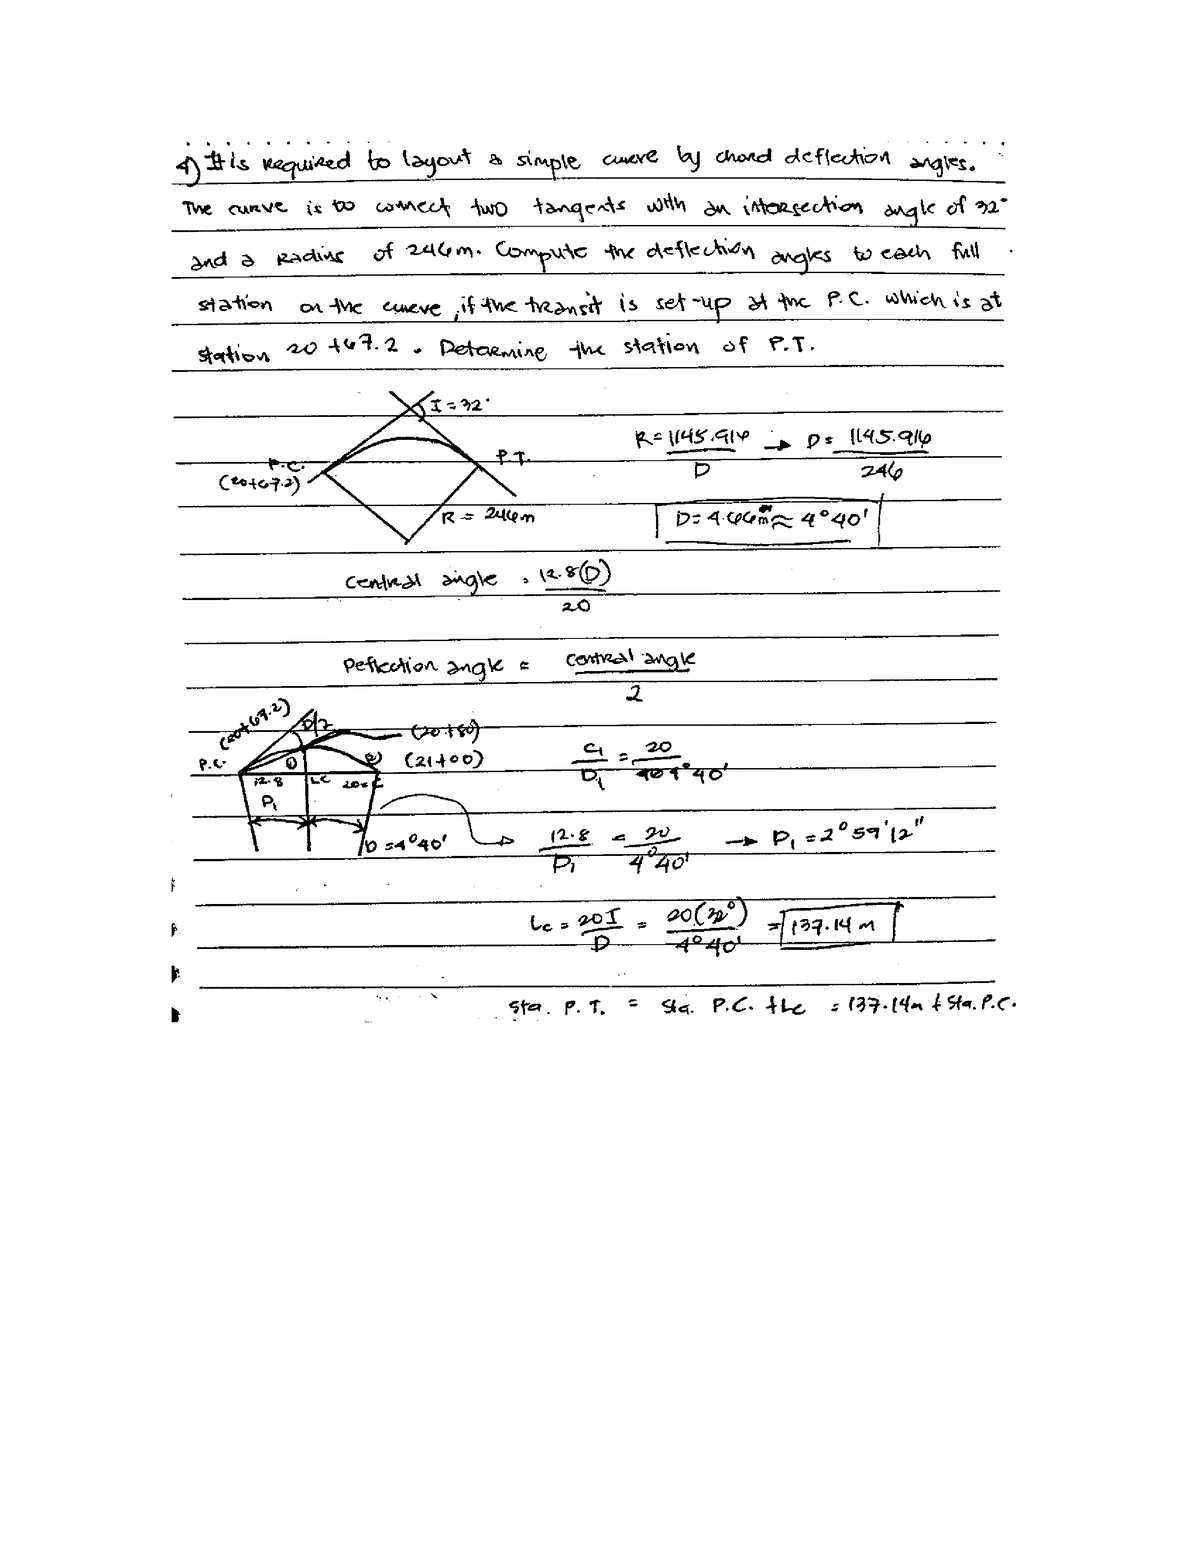 4) It is required to layout a simple curve by chord deflection angles.
The curve is to connect two tangents with an intersection angle of 32°
and a radius of 246m. Compute the deflection angles to each full
station on the curve, if the transit is set-up at the P.C. which is at
station 20+67.2. Determine the station of P.T.
I = 32°
P.C.
(20+67.2)
P.T.
R = 246m
R = 1145.916 / D → D = 1145.916 / 246
D = 4.66 ≈ 4°40'
Central angle = 12.8(D) / 20
Deflection angle = central angle / 2
(20+67.2)
D/2
(20+80)
P.C.
① ②
(21+00)
12.8 LC 20=C
D₁
D = 4°40'
C₁ / D₁ = 20 / 4°40'
12.8 / D₁ = 20 / 4°40' → D₁ = 2°59'12"
Lc = 20I / D = 20(32°) / 4°40' = 137.14 m
Sta. P.T. = Sta. P.C. + Lc = 137.14m + Sta. P.C.